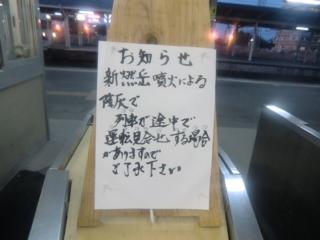 お知らせ
新燃岳噴火による
降灰で
列車が途中で
運転見合せする場合
がありますので
ご了承下さい